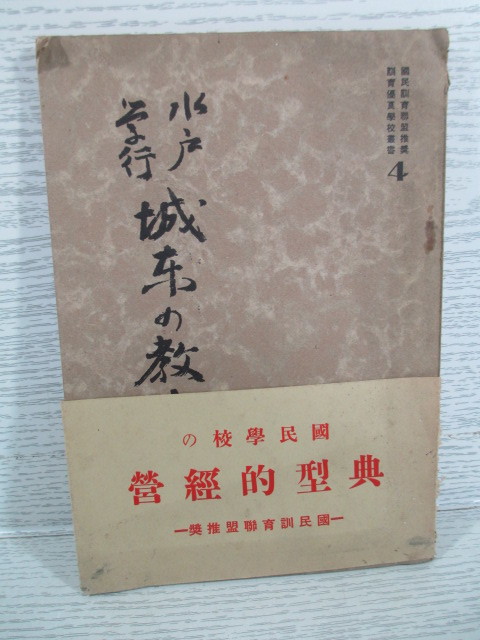 國民訓育聯盟推奬
訓育優良學校叢書
4
水戸
学行
城東の教
國民學校の
典型的經營
─國民訓育聯盟推奬─